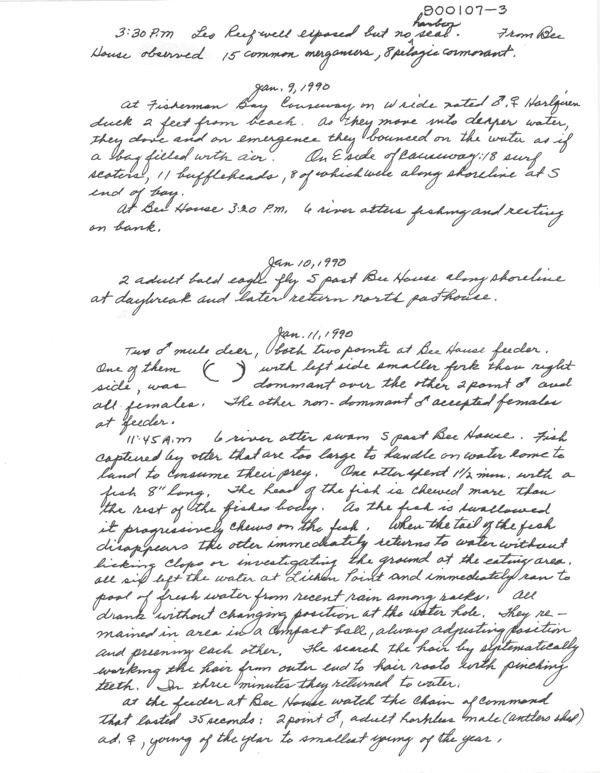 900107-3
3:30 P.M Leo Reef well exposed but no harbor seal. From Bee
House observed 15 common mergansers, 8 pelagic cormorant.
Jan. 9, 1990
At Fisherman Bay Causeway on W side noted ♂, ♀ Harlquin
duck 2 feet from beach. As they move into deeper water,
they dove and on emergence they bounced on the water as if
a bag filled with air. On E side of Causeway: 18 surf
scoters, 11 buffleheads, 8 of which were along shoreline at S
end of bay.
At Bee House 3:20 P.M. 6 river otters fishing and resting
on bank.
Jan 10, 1990
2 adult bald eagle fly S past Bee House along shoreline
at daybreak and later return north past house.
Jan. 11, 1990
Two ♂ mule deer, both two points at Bee House feeder.
One of them ( ) with left side smaller fork than right
side, was dommant over the other 2 point ♂ and
all females. The other non-dommant ♂ accepted females
at feeder.
11:45 A.m 6 river otter swam S past Bee House. Fish
captured by otter that are too large to handle on water come to
land to consume their prey. One otter spent 1½ min. with a
fish 8" long. The head of the fish is chewed more than
the rest of the fishes body. As the fish is swallowed
it progressively chews on the fish. When the tail of the fish
disappears the otter immediately returns to water without
licking chops or investigating the ground at the eating area.
all six left the water at Lichen Point and immediately ran to
pool of fresh water from recent rain among rocks. All
drank without changing position at the water hole. They re-
mained in area in a compact ball, always adjusting position
and preening each other. The search the hair by systematically
working the hair from outer end to hair roots with pinching
teeth. In three minutes they returned to water.
At the feeder at Bee House watch the chain of command
that lasted 35 seconds: 2 point ♂, adult hornless male (antlers shed)
ad. ♀, young of the year to smallest young of the year.